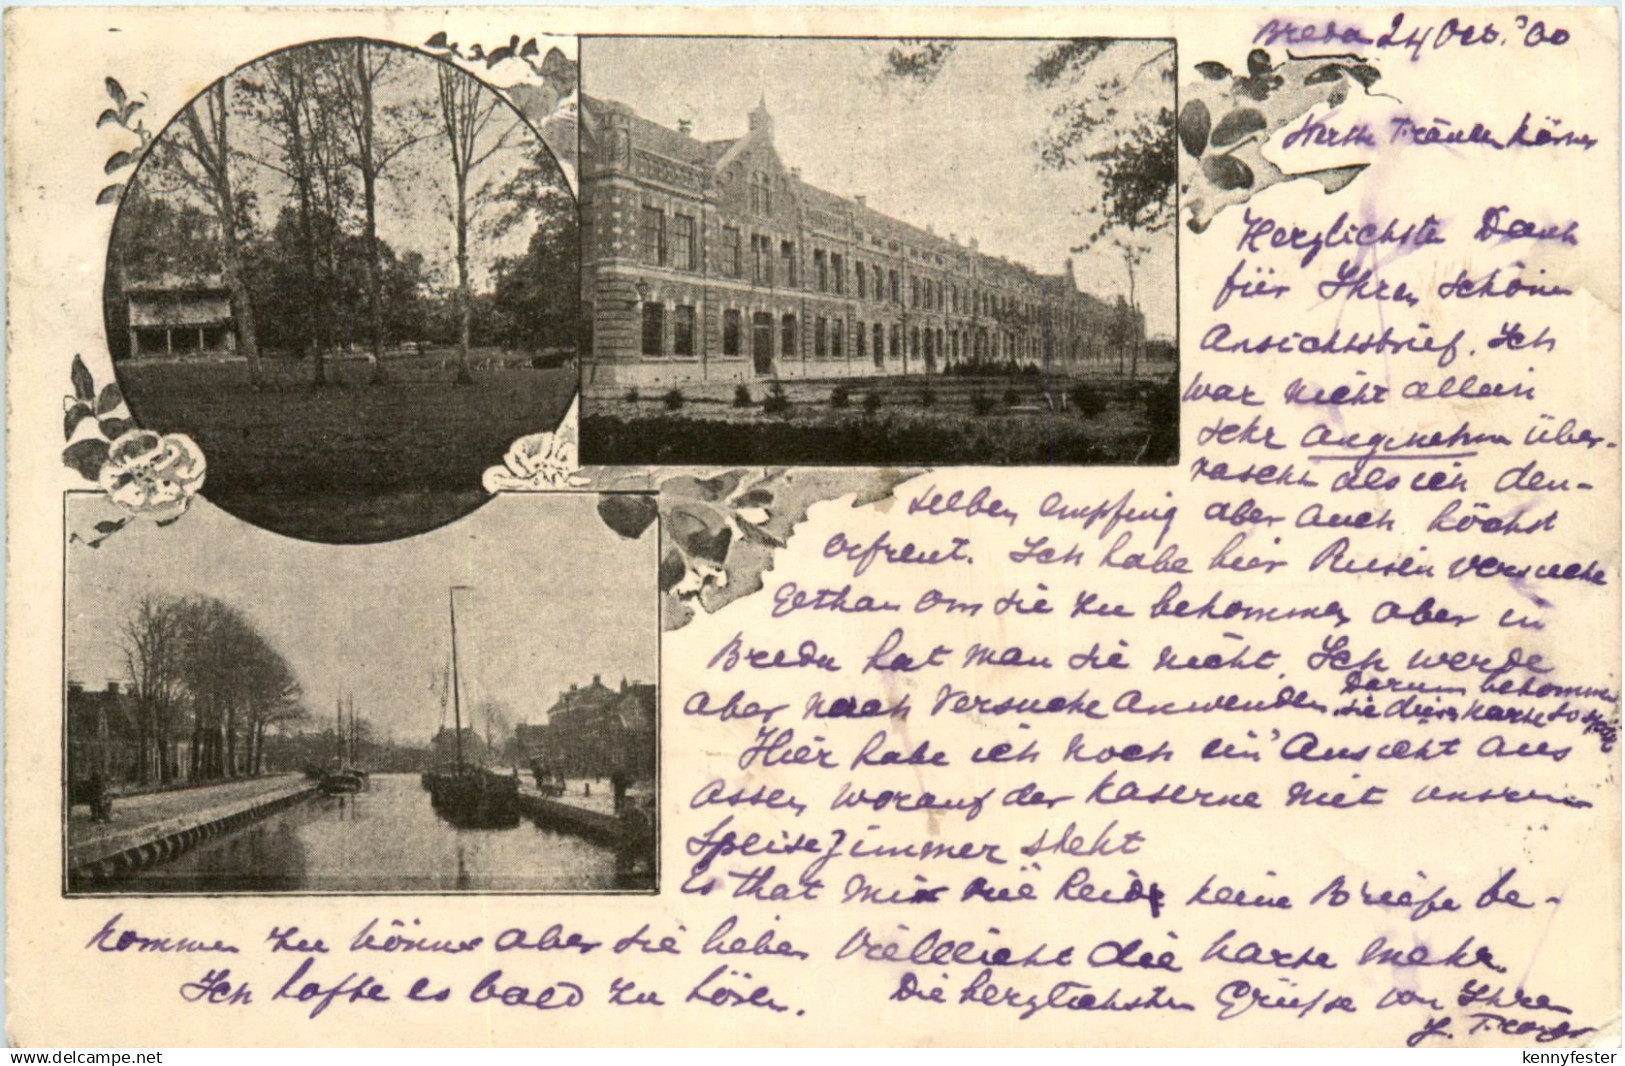 Breda 24 Oct. '00
Werthe Fräulein Körner
Herzlichsten Dank
für Ihren schönen
Ansichtsbrief. Ich
war nicht allein
sehr angenehm über-
rascht als ich den-
selben empfing aber auch höchst
erfreut. Ich habe hier Riesen versuche
gethan om sie zu bekommen aber in
Breda hat man sie nicht. Ich werde
aber noch Versuche anwenden. Darum bekommen
sie diese Karte so spät
Hier habe ich noch ein' Ansicht aus
Assen worauf der Kaserne mit unserem
Speisezimmer steht
Es that mir leid keine Briefe be-
kommen zu können aber sie lieben vielleicht die Karte mehr.
Ich hoffe es bald zu hören. Die herzlichsten Grüsse von Ihren
delcampe.net
kennyfester